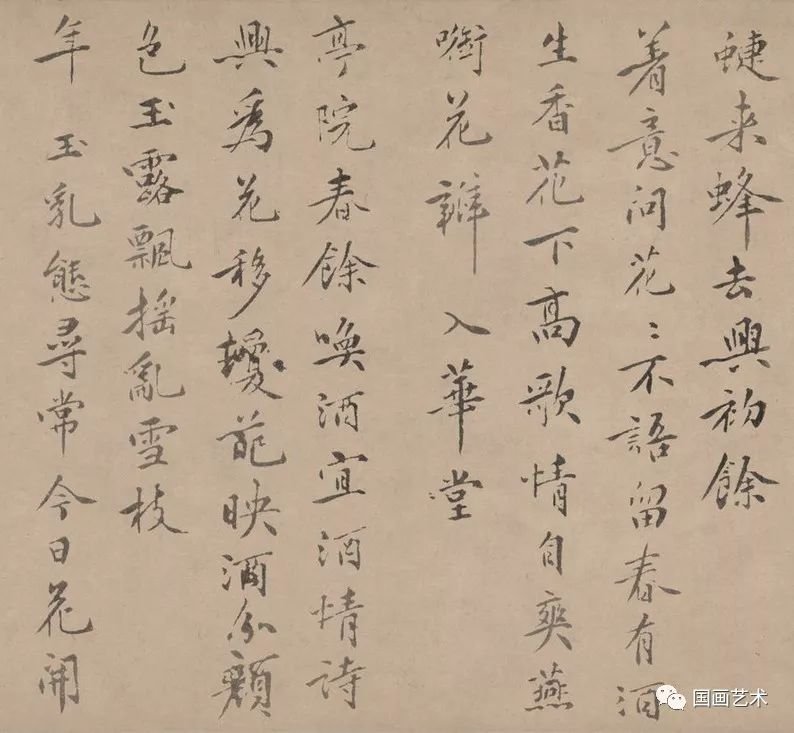 蜨来蜂去興初餘
着意问花〻不語留春有酒
生香花下高歌情自爽燕
啣花瓣入華堂
亭院春餘喚酒宜酒情詩
興為花移花映酒分顏
色玉露飄揺亂雪枝
年玉乳態尋常今日花開
国画艺术